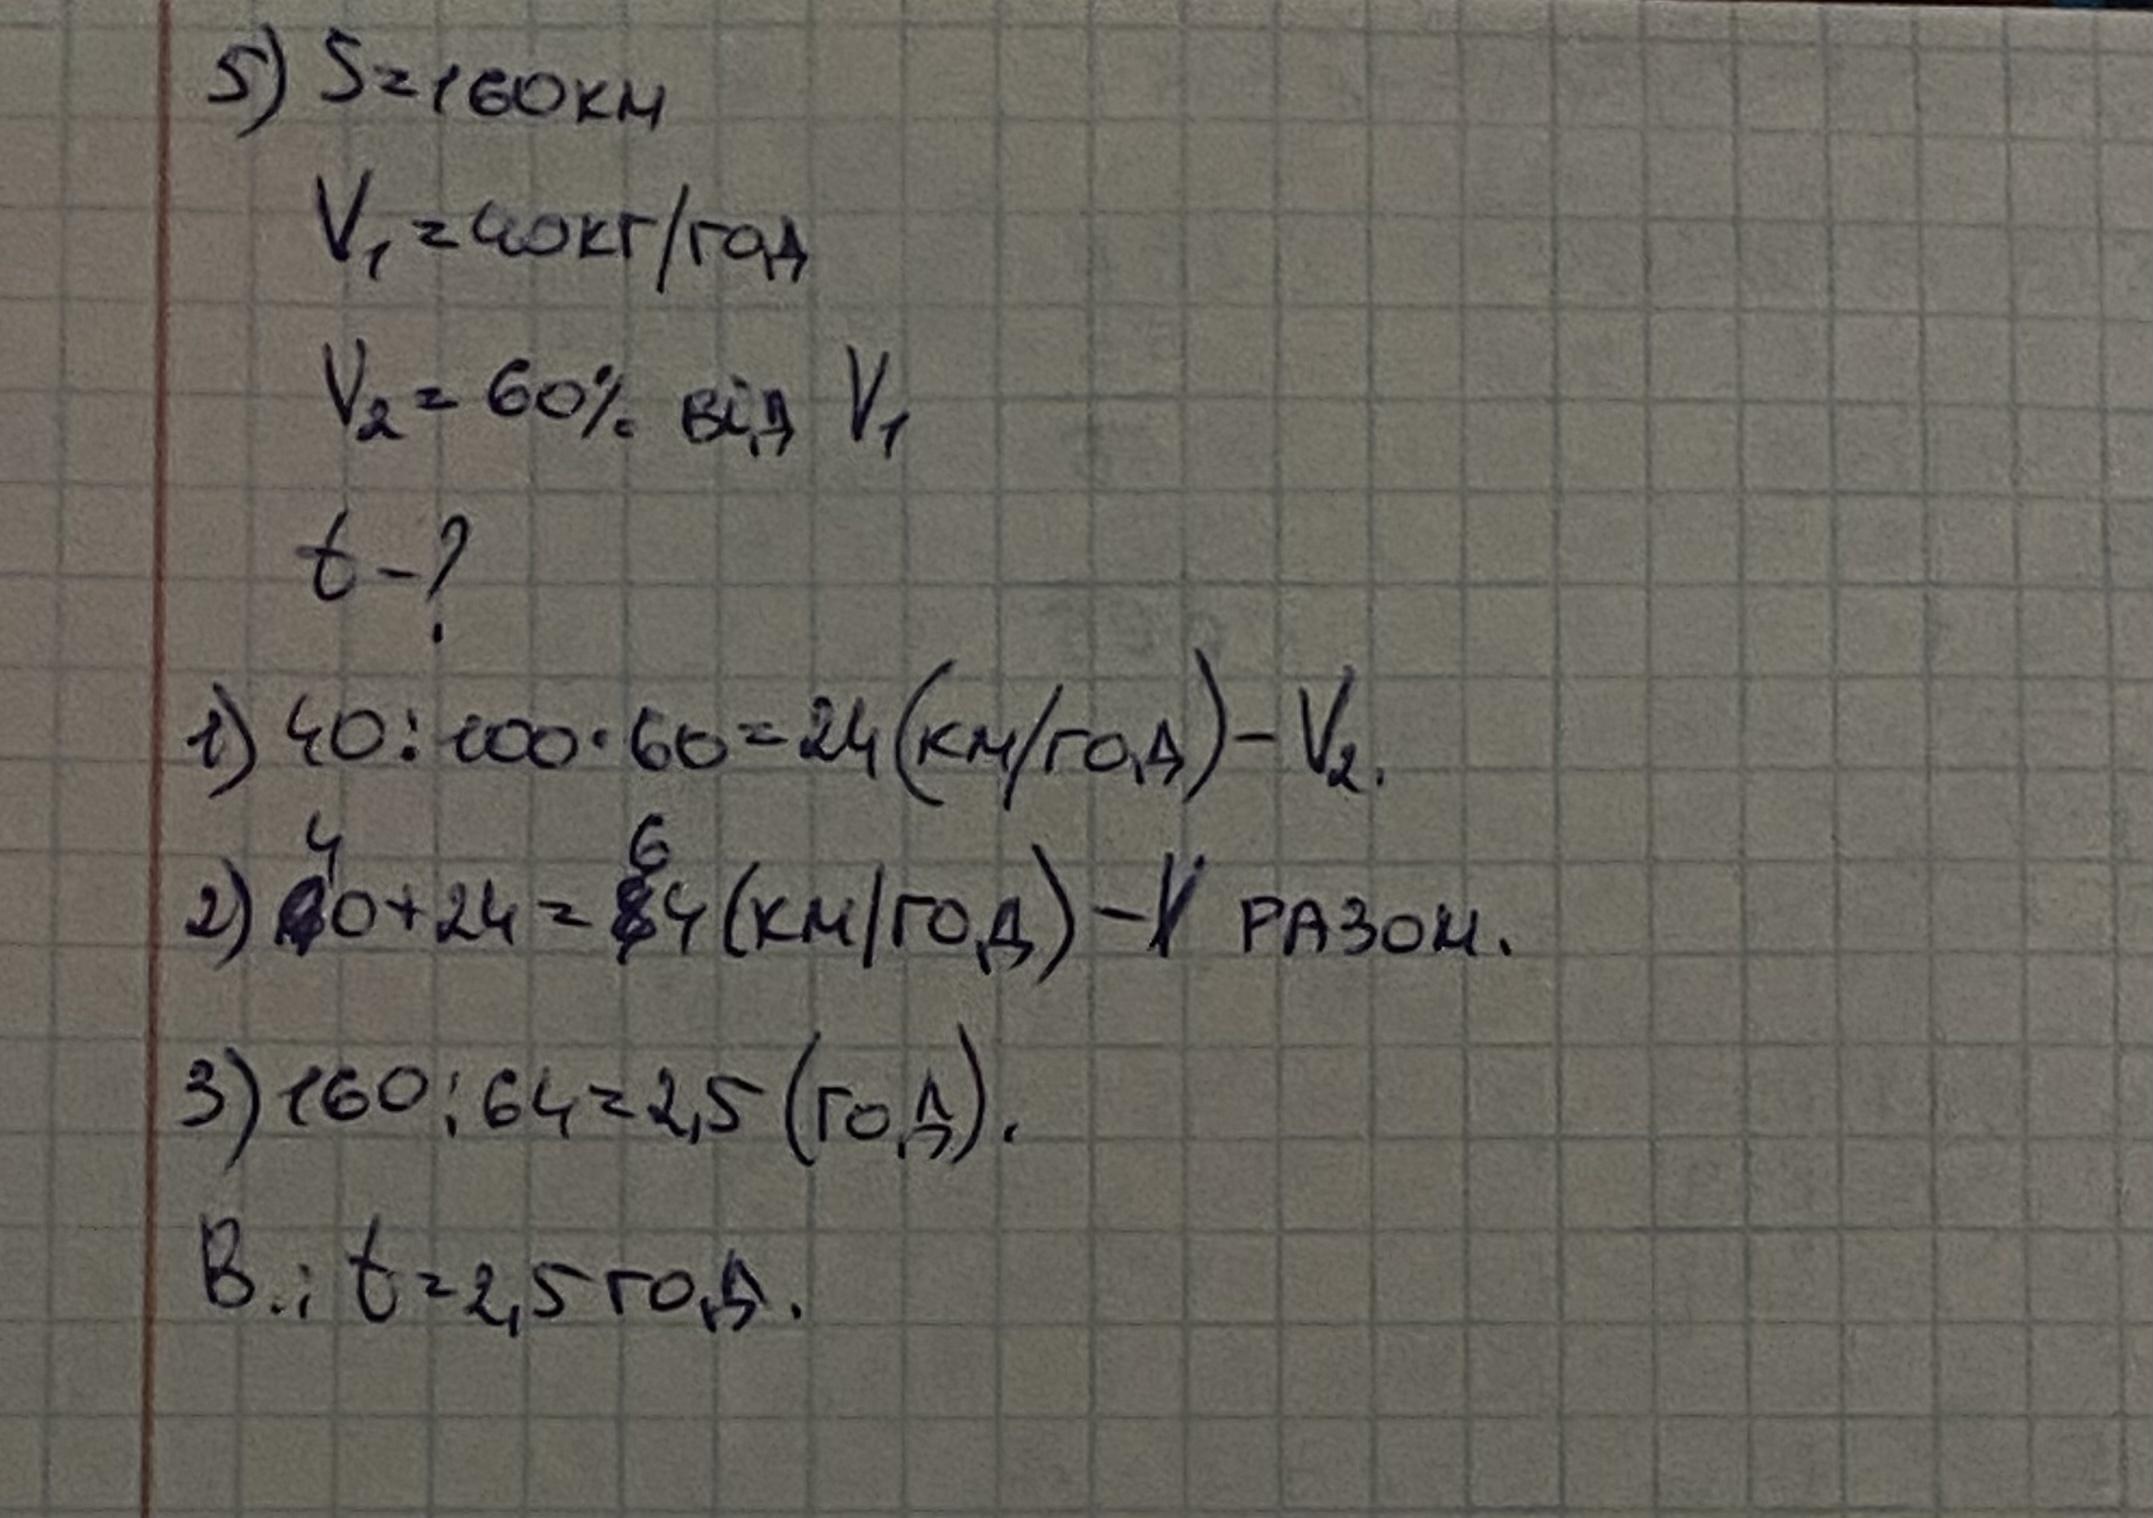 5) S=160км
V₁=40кг/год
V₂=60% від V₁
t-?
1) 40:100·60=24(км/год)-V₂.
2) 40+24=64(км/год)-V РАЗОМ.
3) 160:64=2,5(год).
В.: t=2,5год.